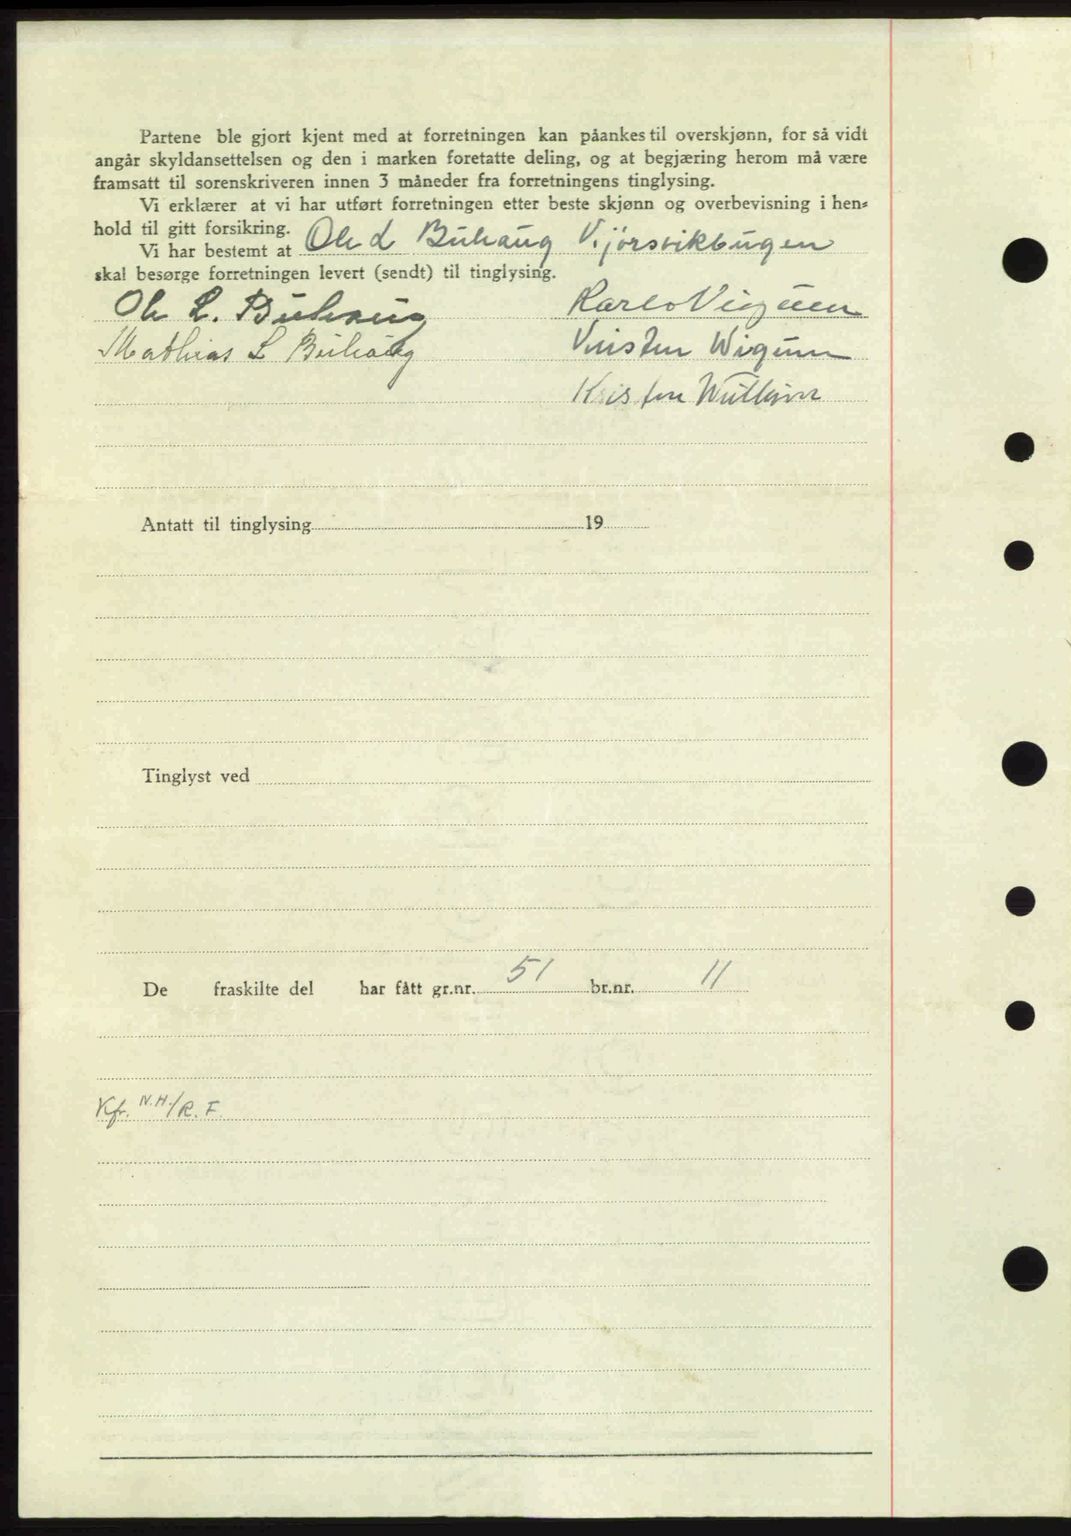 Partene ble gjort kjent med at forretningen kan påankes til overskjønn, for så vidt
angår skyldansettelsen og den i marken foretatte deling, og at begjæring herom må være
framsatt til sorenskriveren innen 3 måneder fra forretningens tinglysing.
Vi erklærer at vi har utført forretningen etter beste skjønn og overbevisning i hen=
hold til gitt forsikring.
Vi har bestemt at Ole L Buhaug
skal besørge forretningen levert (sendt) til tinglysing.
Ole L. Buhaug
Mathias L Buhaug
Antatt til tinglysing 19
Tinglyst ved
De fraskilte del har fått gr.nr. 51 br.nr. 11
Kfr. N.H./R.F.